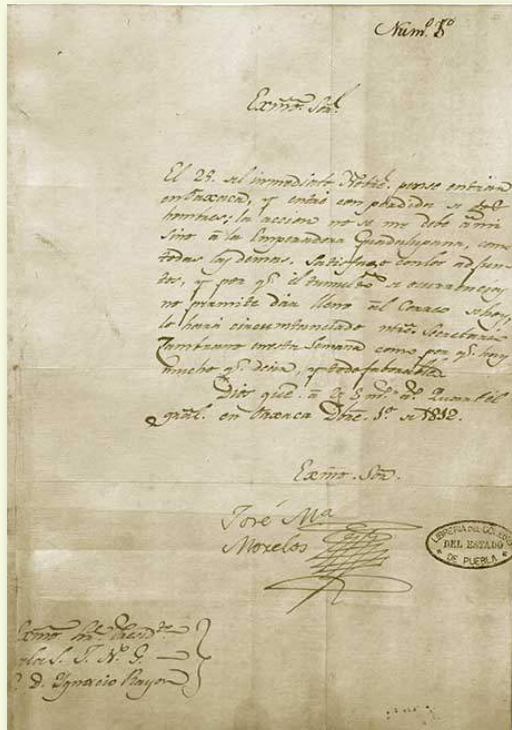 Num.º 8º
Exmô. Sôr.
El 25. del inmediato Nôbrê. pense entrar
en Oaxaca, y entré con pérdida de
hombres; la accion no se me debe â mi
sino â la Emperadora Guadalupana, como
todas las demas. Satisfago con los adjun-
tos, y por q.e el tumulto de ocurrencias
no permite dar lleno al Correo de hoy,
lo hará circunstanciado ntrô. Secretario
Zambrano en esta Semana como por q.e hay
mucho q.e decir, y todo faborable.
Dios gue. â V. E. m.s a.s Quartel
gral. en Oaxaca Dbrê. 1.º de 1812.
Exmô. Sôr.
José M.a
Morelos
Exmô. Sôr. Presid.te
de la S. J. N. G.
D. Ygnacio Rayon
LIBRERIA DEL COLEGIO
DEL ESTADO
DE PUEBLA